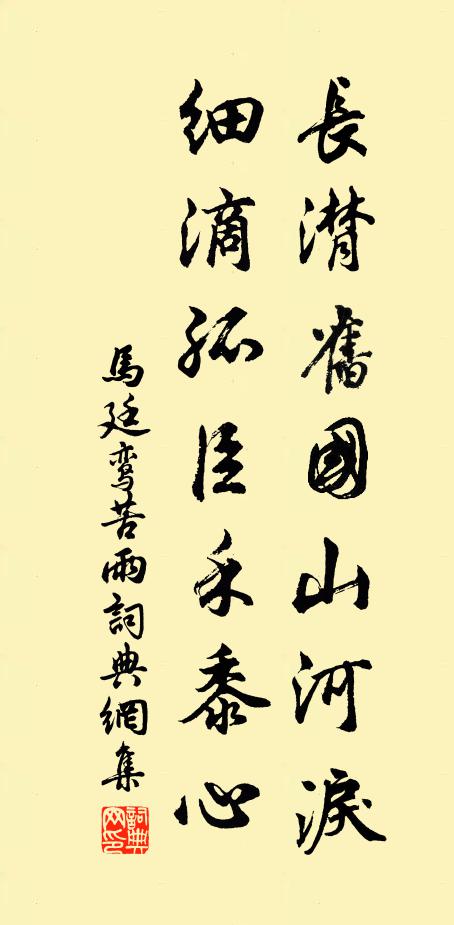 長潸舊國山河淚
細滴孤臣禾黍心
馬廷鸞苦雨詞典網集
詞典网印